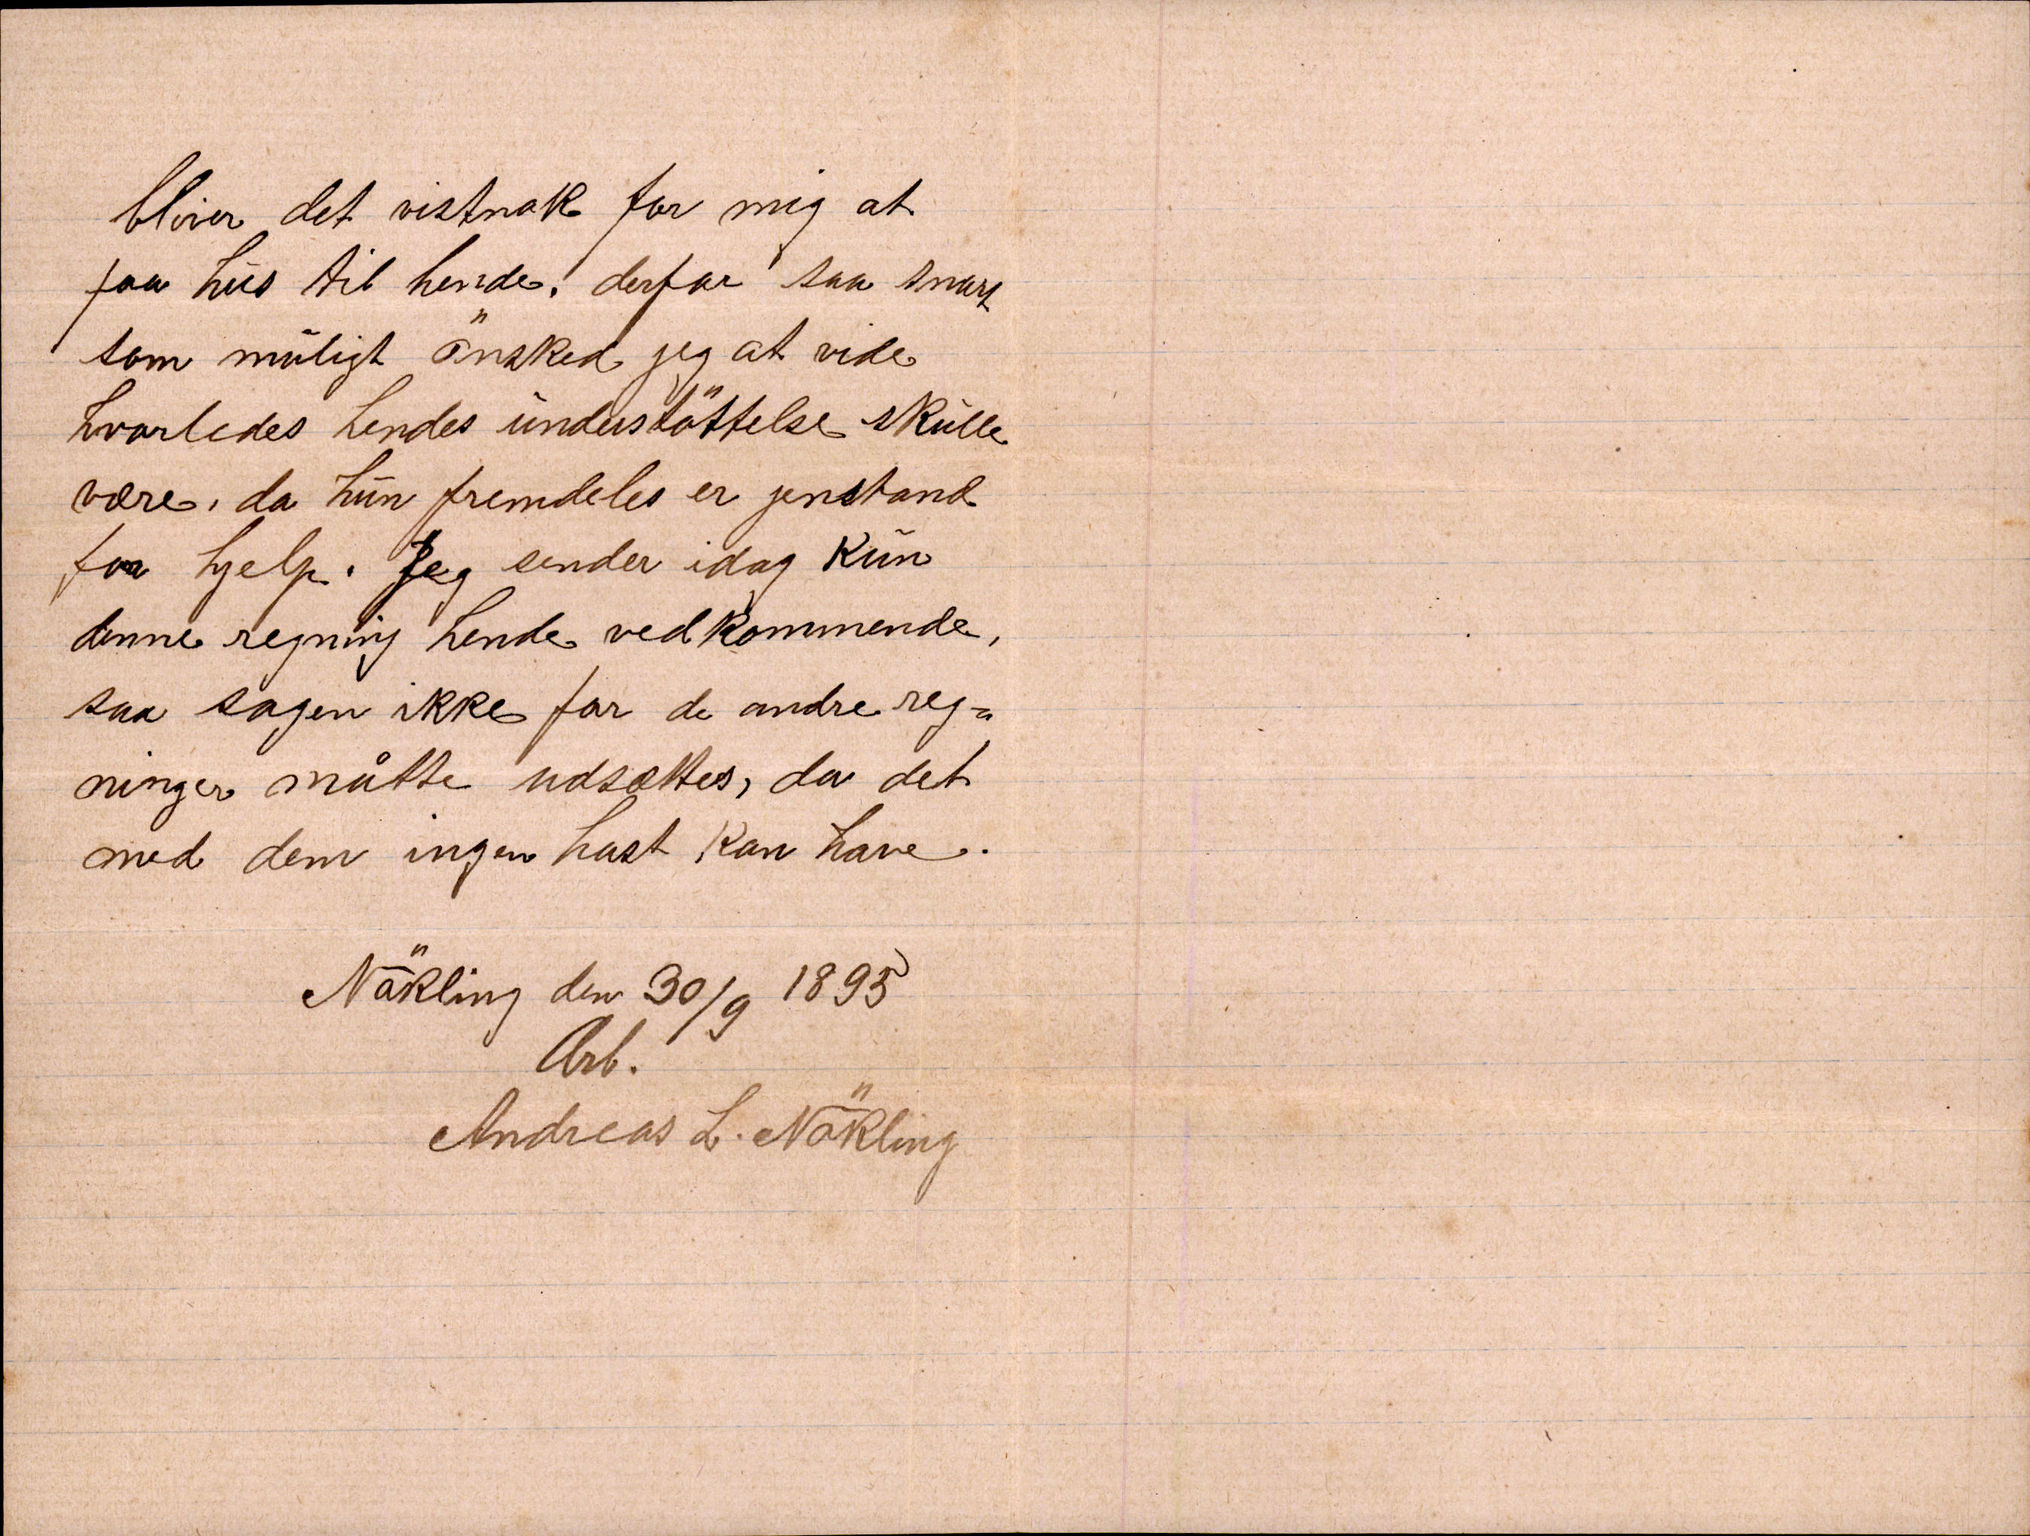 bliver det vistnok for mig at
faa hus til hende, derfor saa snart
som muligt önsked jeg at vide
hvorledes hendes understöttelse skulle
være, da hun fremdeles er jenstand
for hjelp. Jeg sender idag kun
denne regning hende vedkommende,
saa sagen ikke for de andre reg=
ninger måtte udsættes, da det
med dem ingen hast kan have.
Nökling den 30/9 1895
Arb.
Andreas L. Nökling